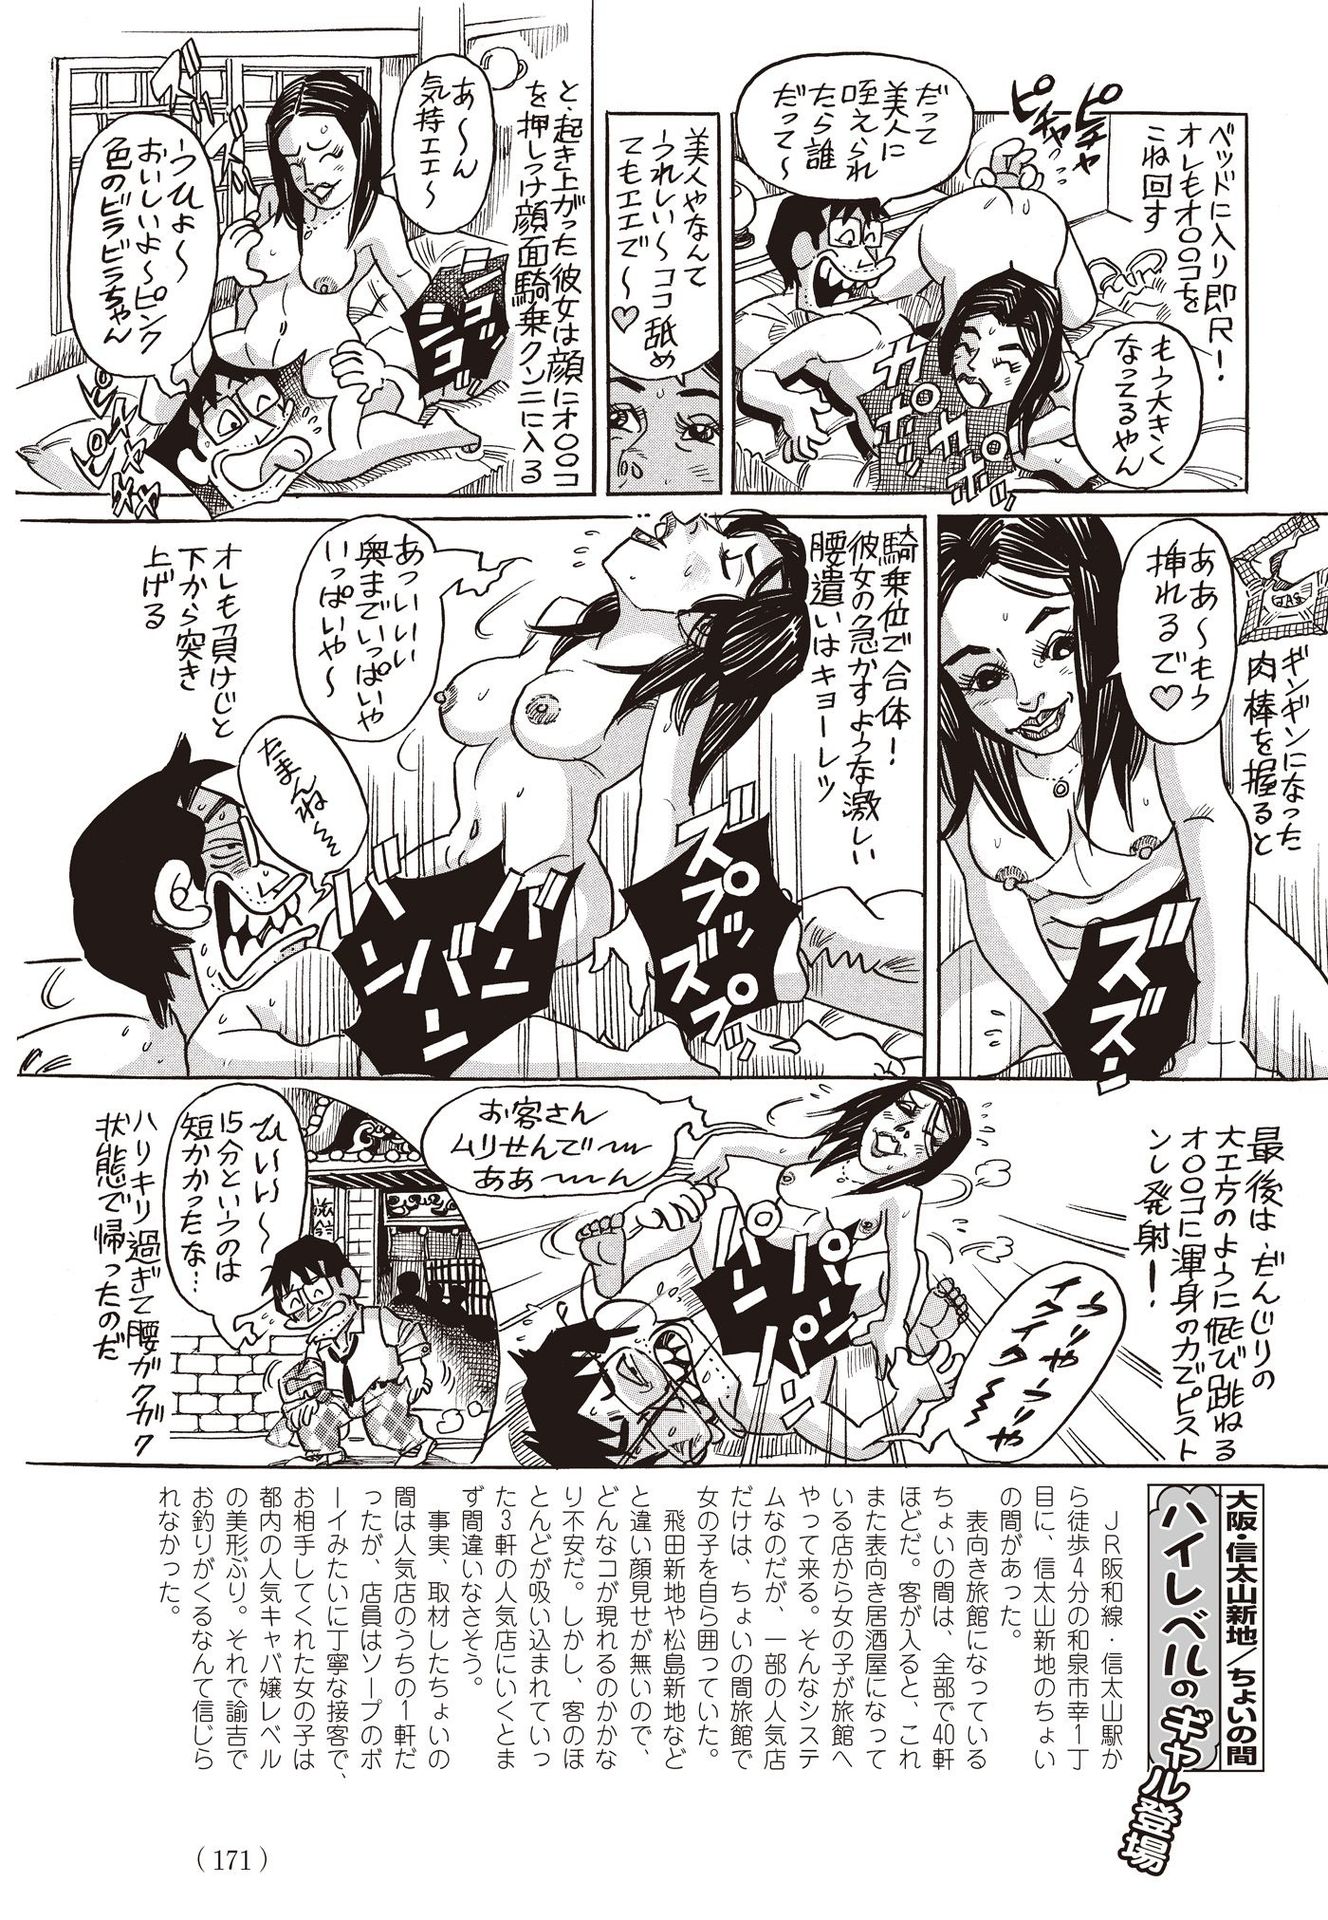 ベッドに入り即尺!
オレもオ〇〇コを
こね回す
ピチャ
ピチャ
だって
美人に
咥えられ
たら誰
だって〜
もう大きく
なってるやん
カポッ
カポッ
美人やなんて
うれしい〜ココ舐め
てもエエで〜♡
と、起き上がった彼女は顔にオ〇〇コ
を押しつけ顔面騎乗クンニに入る
あ〜ん
気持エエ〜
うひょ〜
おいしいよ〜ピンク
色のビラビラちゃん
シコ
シコ
ピチャ
ピチャ
ギンギンになった
肉棒を握ると
JAS
ああ〜もう
挿れるで♡
ズズン
騎乗位で合体!
彼女の急かすような激しい
腰遣いはキョーレツ
あっいいい
奥までいっぱいや
いっぱいや〜
オレも負けじと
下から突き
上げる
たまんね〜
ズプッ
ズズプッ
バン
バン
バン
最後は、だんじりの
大工方のように飛び跳ねる
オ〇〇コに渾身の力でピスト
ンし発射!
お客さん
ムリせんで〜
ああ〜ん
うりゃうりゃ
イクイク〜
うりゃ
パン
パン
パン
ひい〜
15分というのは
短かかったな…
旅館
ハリキリ過ぎて腰がクガク
状態で帰ったのだ
大阪・信太山新地/ちょいの間
ハイレベルのギャル登場
JR阪和線・信太山駅か
ら徒歩4分の和泉市幸1丁
目に、信太山新地のちょい
の間があった。
表向き旅館になっている
ちょいの間は、全部で40軒
ほどだ。客が入ると、これ
また表向き居酒屋になって
いる店から女の子が旅館へ
やって来る。そんなシステ
ムなのだが、一部の人気店
だけは、ちょいの間旅館で
女の子を自ら囲っていた。
飛田新地や松島新地など
と違い顔見せが無いので、
どんなコが現れるのかかな
り不安だ。しかし、客のほ
とんどが吸い込まれていっ
た3軒の人気店にいくとま
ず間違いなさそう。
事実、取材したちょいの
間は人気店のうちの1軒だ
ったが、店員はソープのボ
ーイみたいに丁寧な接客で、
お相手してくれた女の子は
都内の人気キャバ嬢レベル
の美形ぶり。それで諭吉で
お釣りがくるなんて信じら
れなかった。
(171)